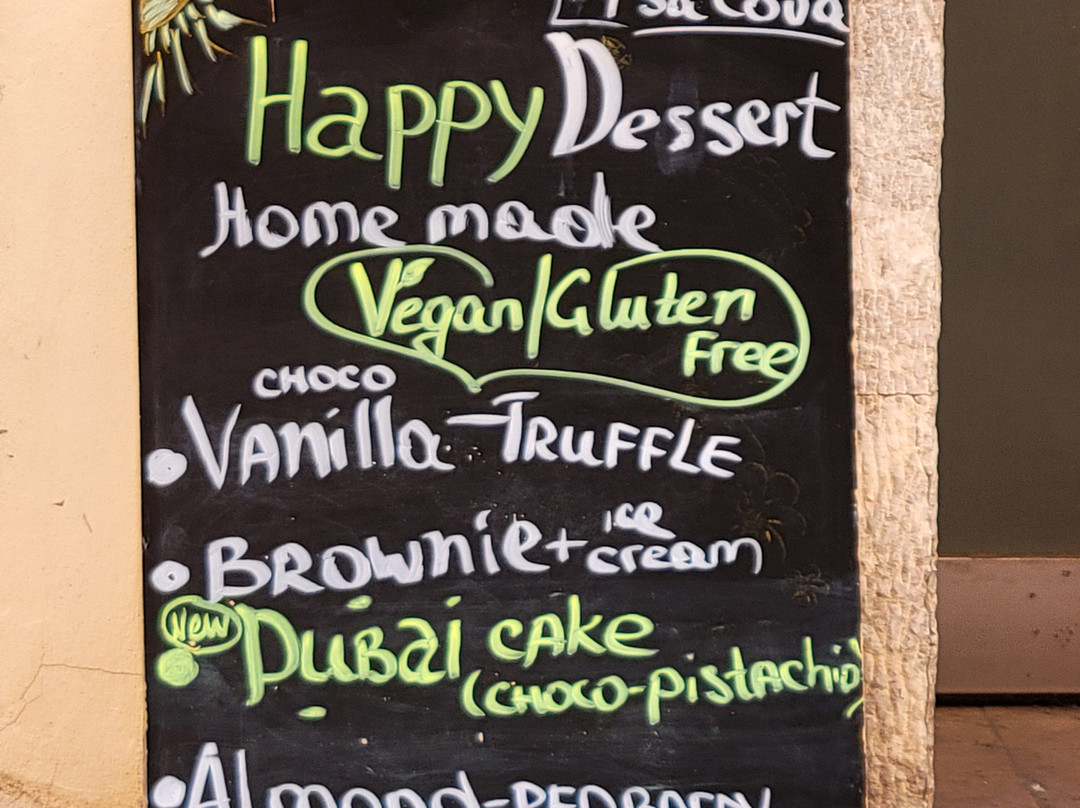 Happy Dessert
Home made
Vegan/Gluten
Free
CHOCO
• VAnilla - TRUFFLE
• BROWNie + ice cream
New
• DUBai CAke
(CHOCO-PistAchio)
• Almond-